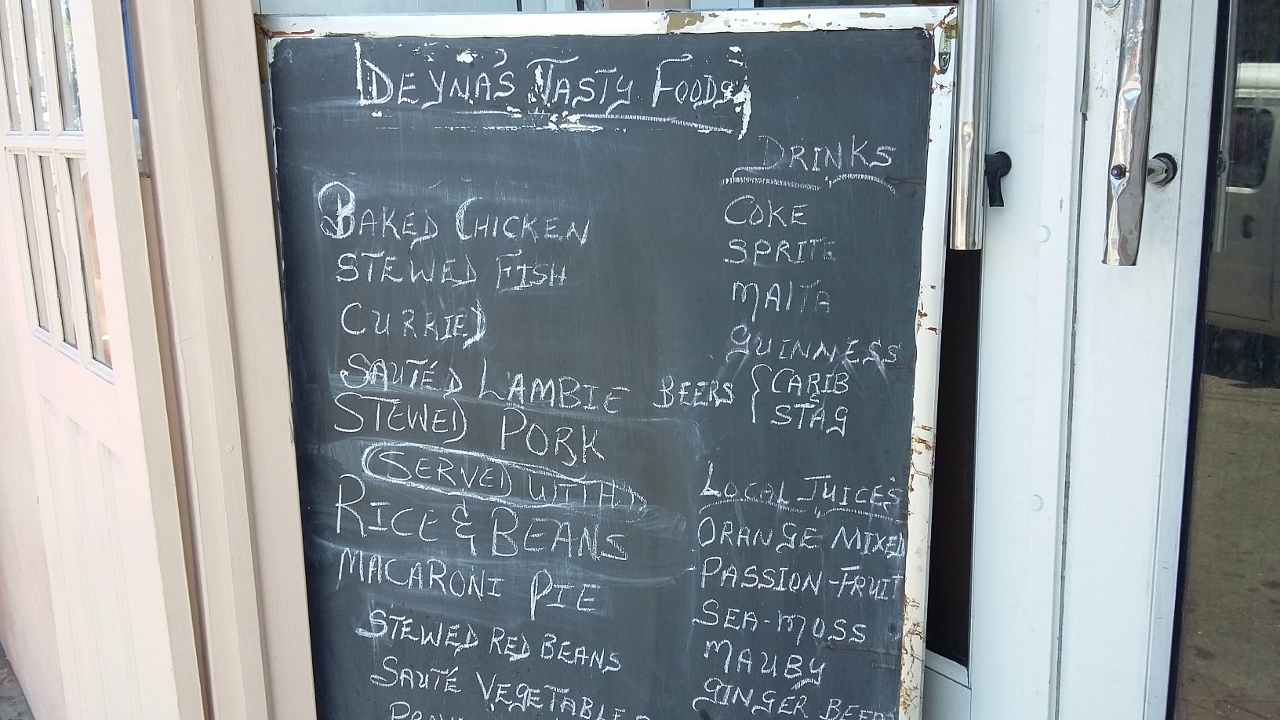 DEYNA'S TASTY FOODS
BAKED CHICKEN
STEWED FISH
CURRIED
SAUTÉD LAMBIE
STEWED PORK
SERVED WITH
RICE & BEANS
MACARONI PIE
STEWED RED BEANS
SAUTÉ VEGETABLES
DRINKS
COKE
SPRITE
MALTA
GUINNESS
BEERS { CARIB
STAG
LOCAL JUICES
ORANGE MIXED
PASSION-FRUIT
SEA-MOSS
MAUBY
GINGER BEER